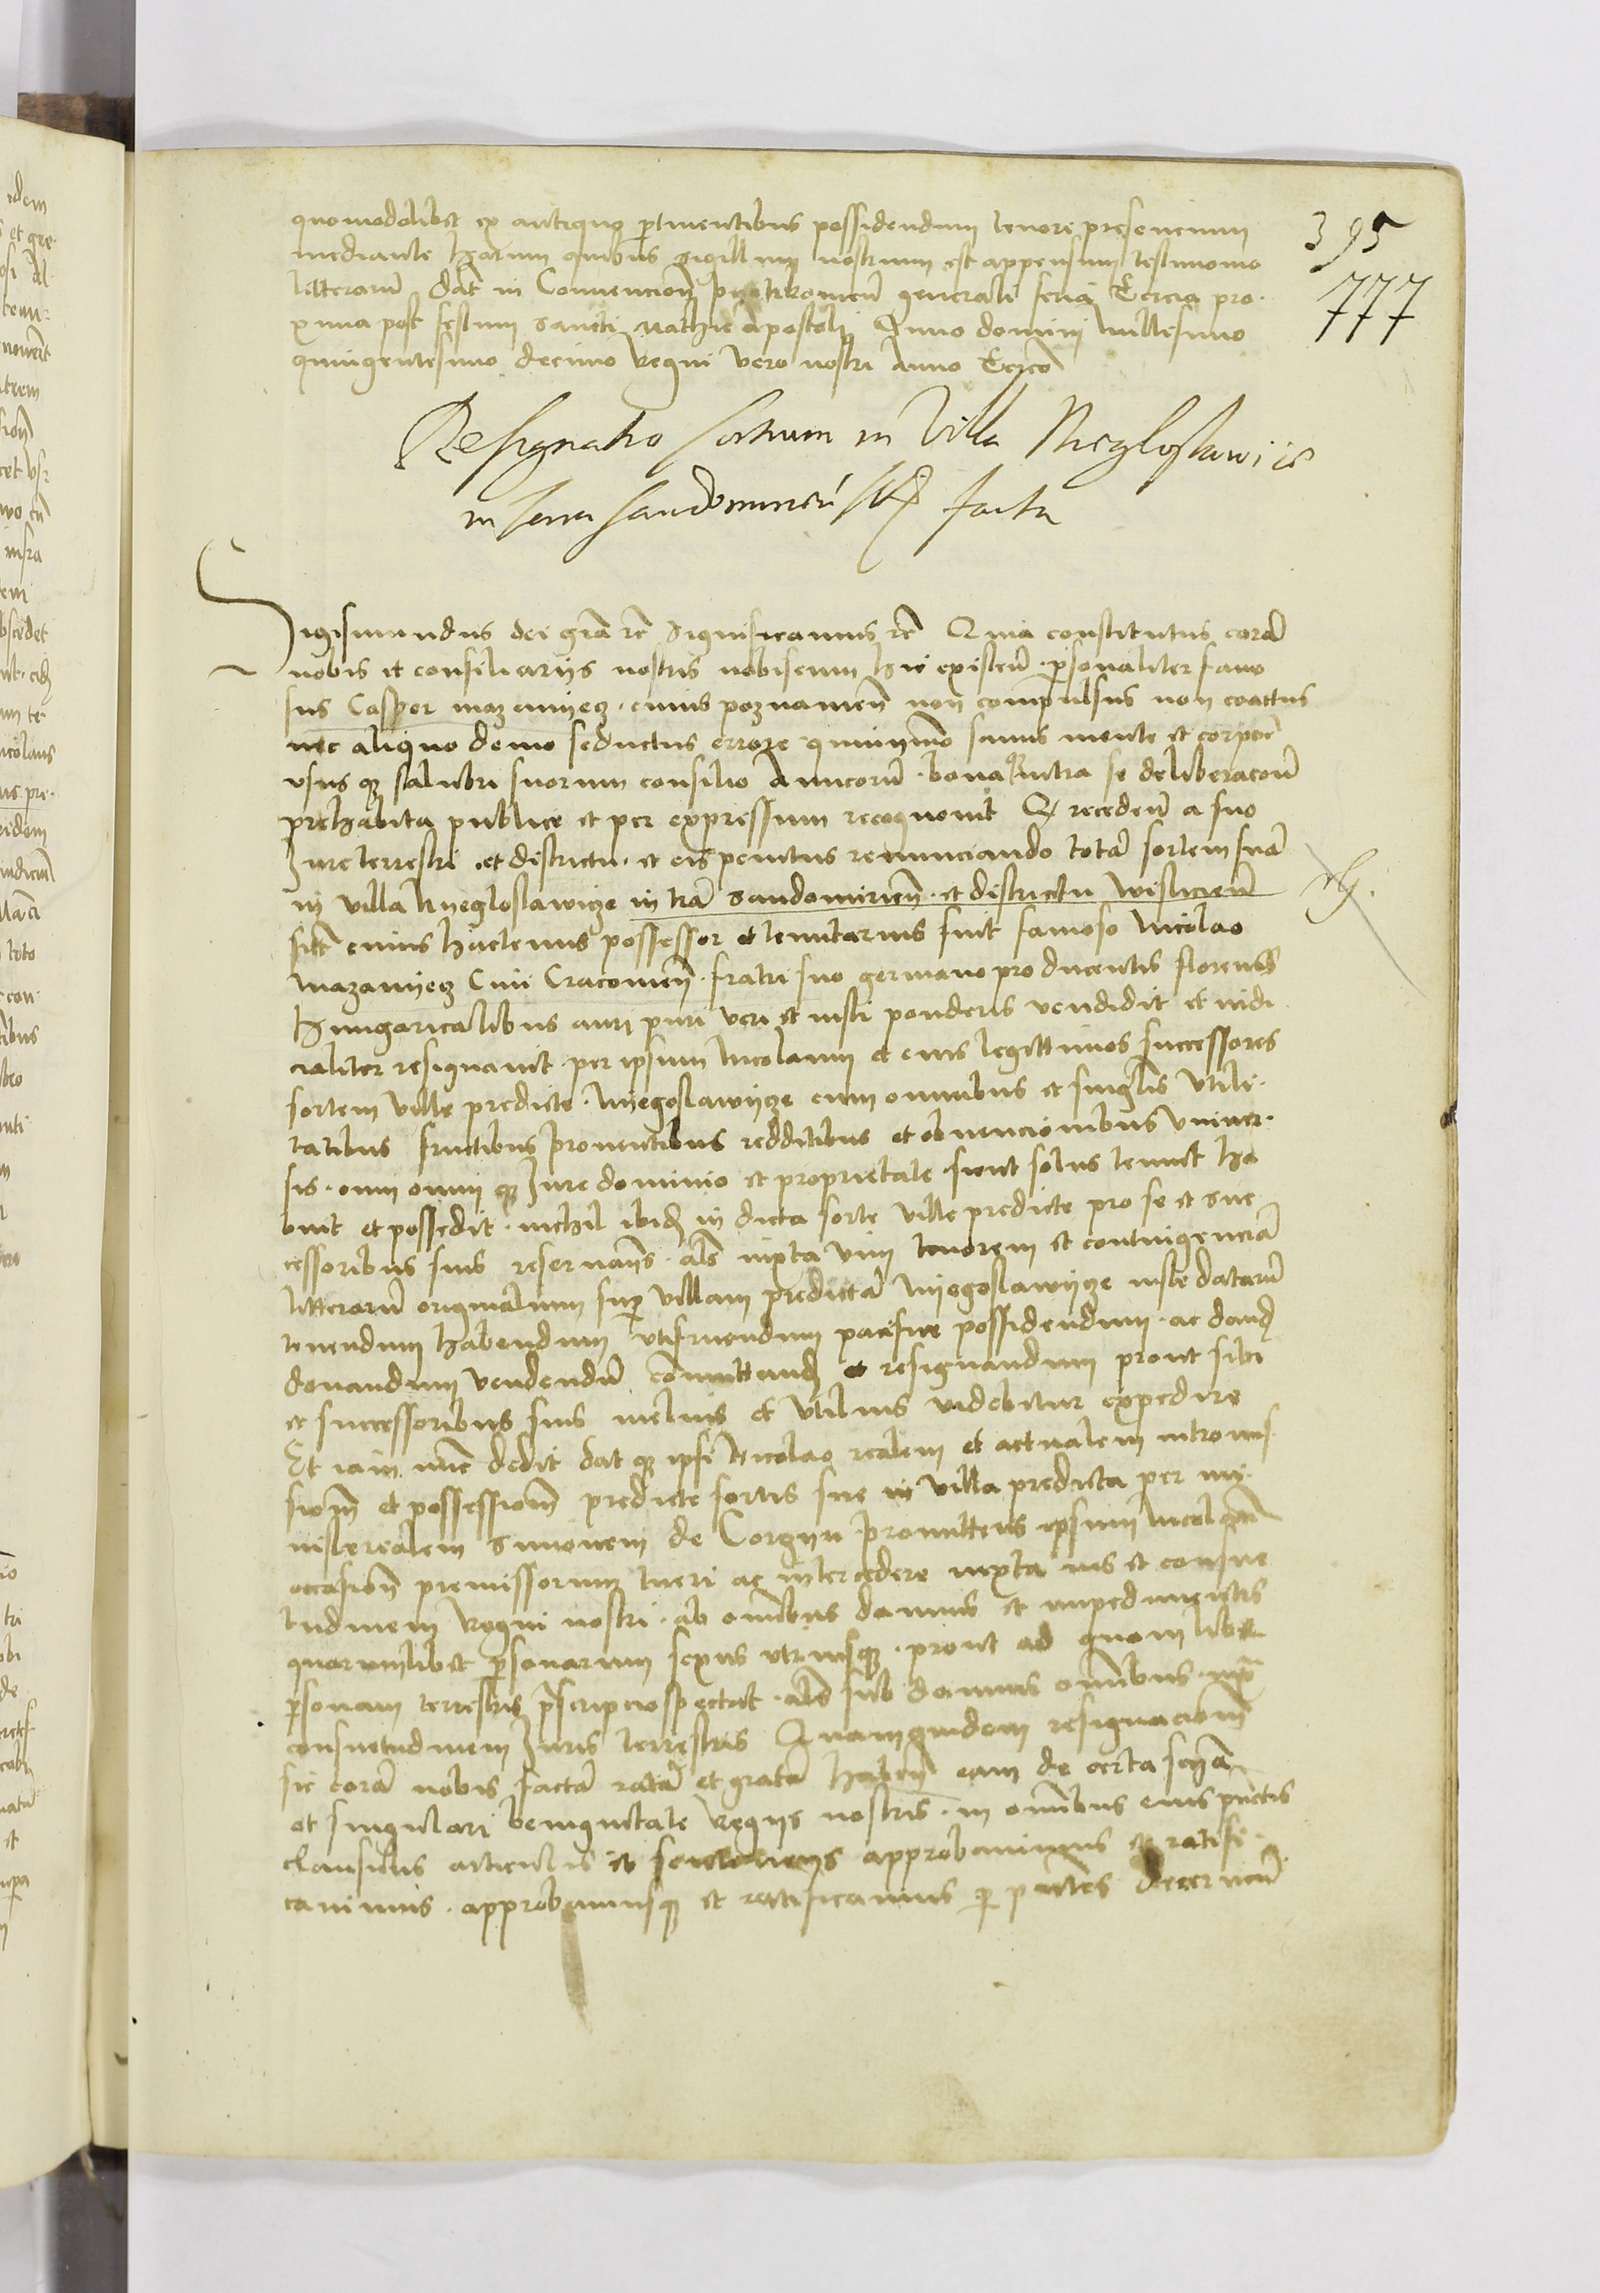 quomodolibet ex antiquo pertinentibus possidendum tenore presencium
mediante harum quibus sigillum nostrum est appensum testimonio
litterarum dat in Convencione generali feria Tercia pro-
xima post festum sancti Mathie Apostoli Anno domini Millesimo
quingentesimo decimo Regni vero nostri Anno Tercio
395
777
Resignatio sortium in Villa
in terra Sandomirien facta
Sigismundus dei gra rc Significamus rc Quia constitutus coram
nobis et consiliariis nostris nobiscum hic existen personaliter famo
sus Casper civis poznanien non compulsus non coactus
nec aliquo devio seductus errore quinymo sanus mente et corpore
usus que salubri suorum consilio Amicorum bona intra se deliberacione
prehabita publice et per expressum recognovit Q receden a suo
Jure terrestri et districtu et eis penitus renunciando totam sortem suam
in villa Nyegloslawicze in tra Sandomirien et districtu Wislicien
sit cuius hactenus possessor et tenutarius fuit famoso Nicolao
Civi Cracovien fratri suo germano pro ducentis florenis
hungaricalibus auri puri veri et iusti ponderis vendidit et iudi
cialiter resignavit per ipsum Nicolaum et eius legittimos successores
sortem ville predicte Nyegoslawycze cum omnibus et singulis utili-
tatibus fructibus proventibus redditibus et obvencionibus univer-
sis cum omni que Jure dominio et proprietate sicut solus tenuit ha
buit et possedit nichil ibid in dicta sorte ville predicte pro se et suc
cessoribus suis reservans als iuxta vim tenorem et contingenciam
litterarum originalium super villam predictam Nyegoslawycze iuste datarum
tenendum habendum utifruendum pacifice possidendum ac dand
donandum vendendum commutand et resignandum prout sibi
et successoribus suis melius et utilius videbitur expedire
Et iam nunc dedit dat que ipsi Nicolao realem et actualem intromis-
sionem et possessionem predicte sortis sue in villa predicta per mi-
nisterialem Simonem de promittens ipsum Nicolaum
occasione premissorum tueri ac intercedere iuxta ius et consue
tudinem Regni nostri ab omnibus damnis et impedimentis
quorumlibet personarum sexus utriusque prout ad quamlibet
personam terrestris prescripcio spectat als sub damnis omnibus iuxta
consuetudinem Juris terrestris Quamquidem resignacionem
sic coram nobis factam ratam et gratam haben eam de certa scien
et singulari benignitate Regiis nostris in omnibus eius punctis
clausulis articulis et sentenciis approbavimus et ratifi
cavimus approbamusque et ratificamus per pntes decernen